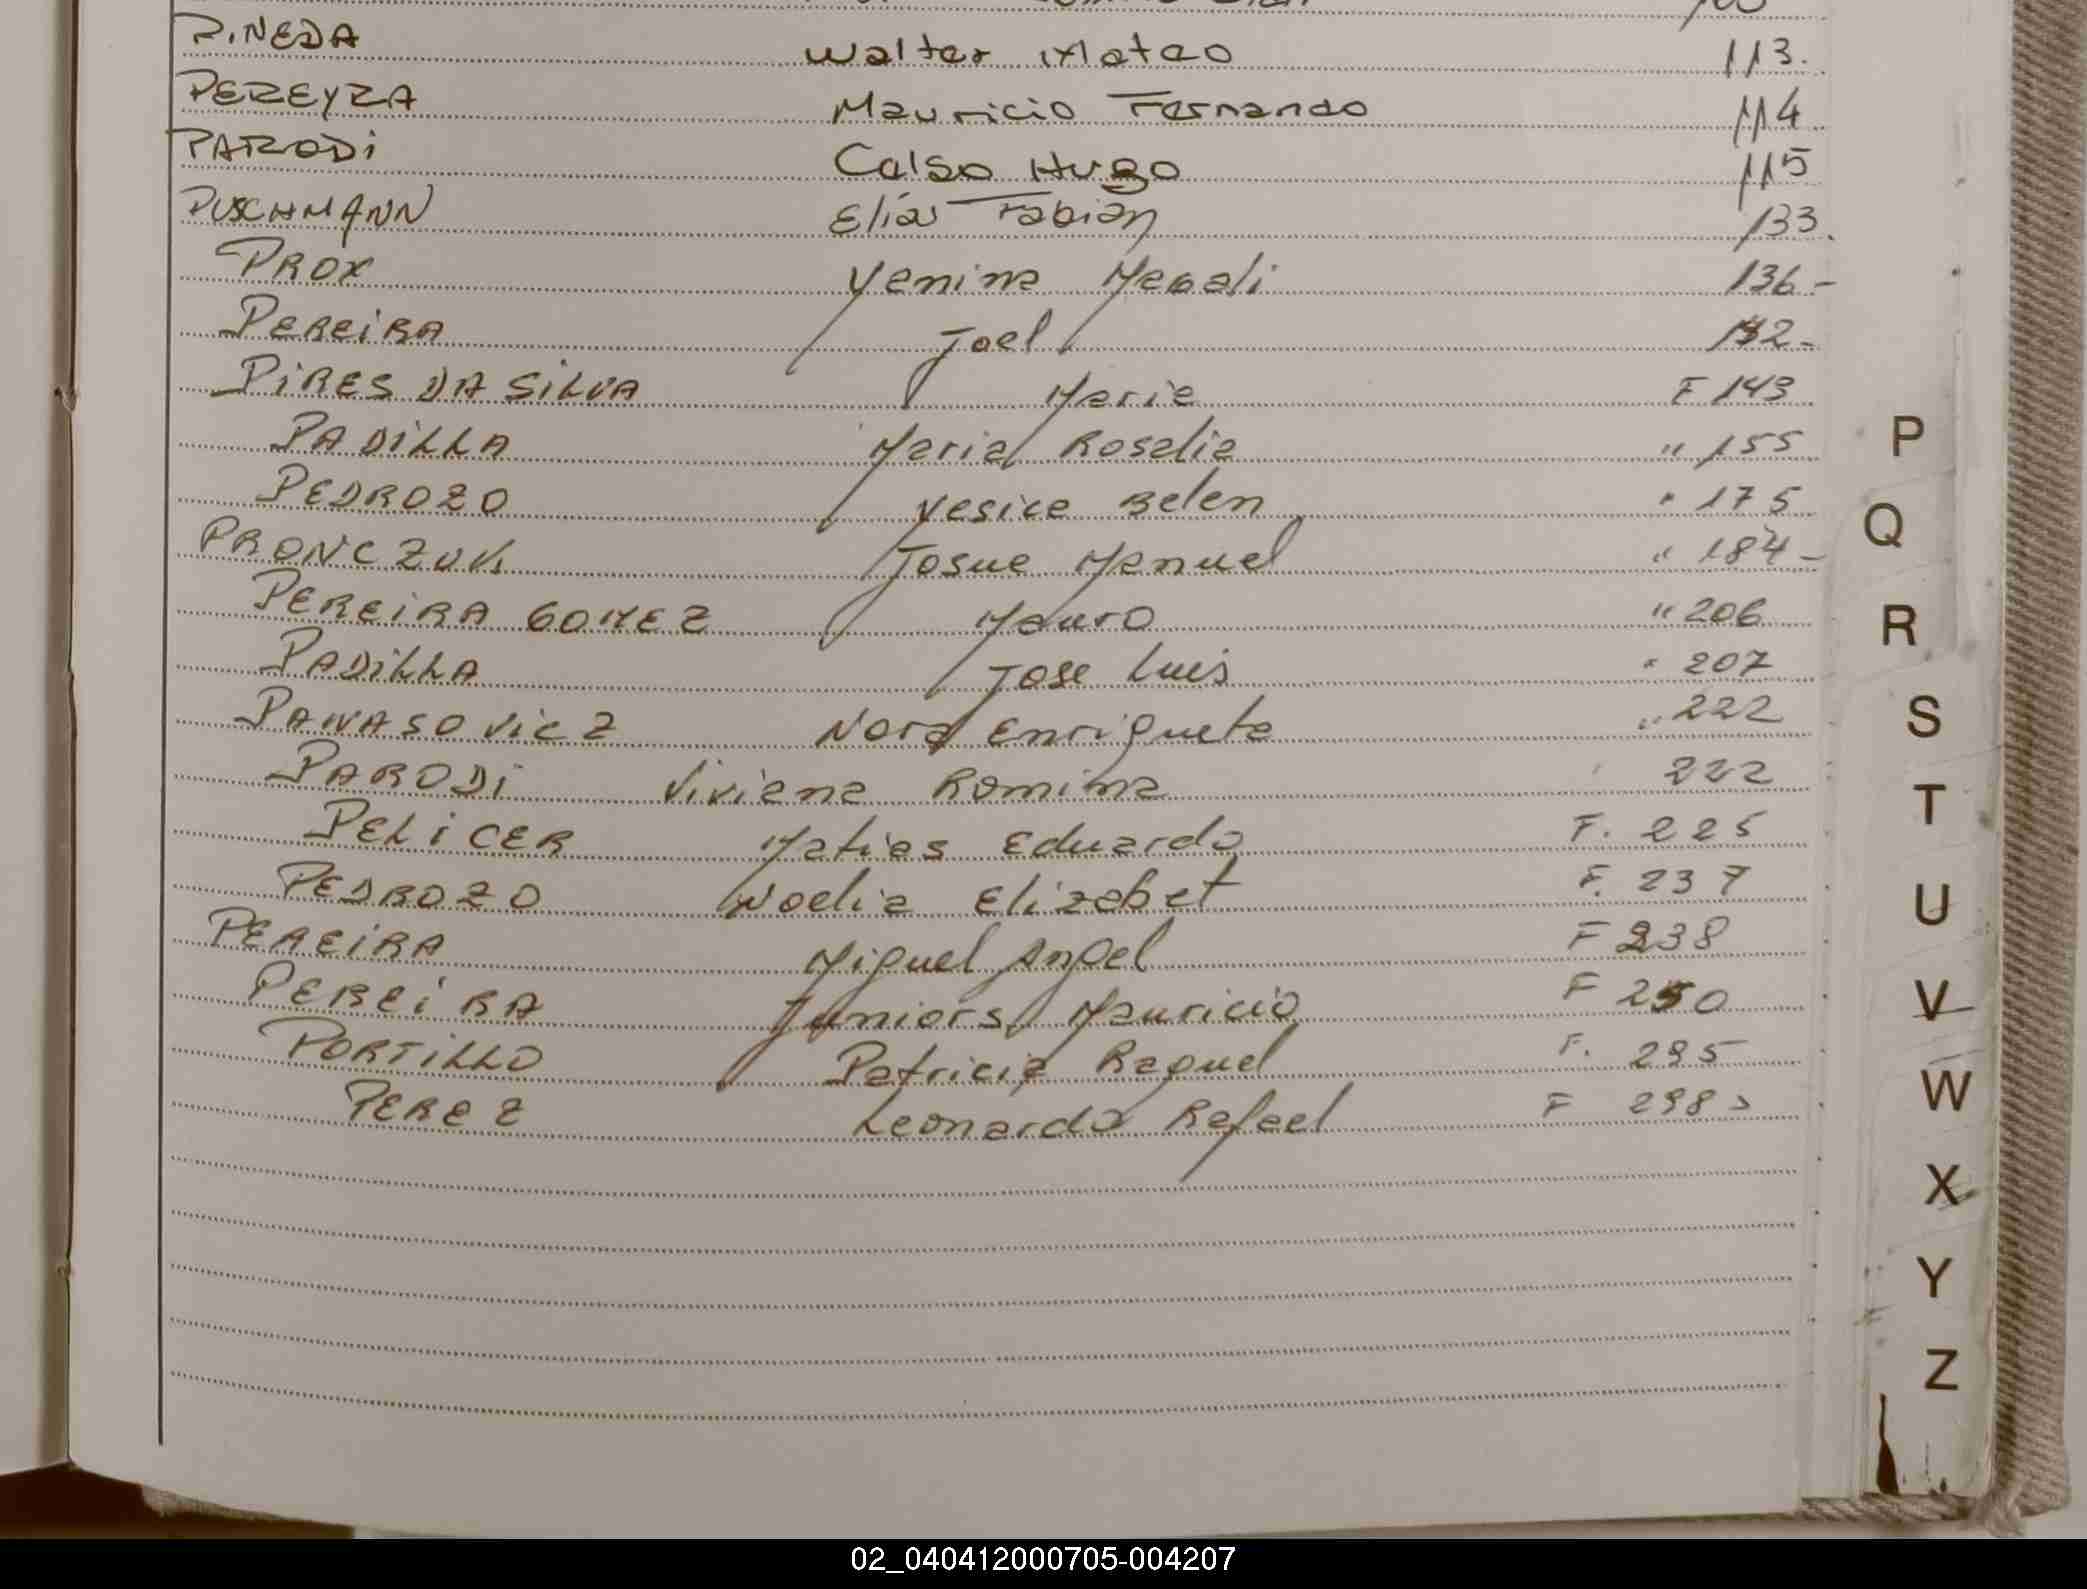 PINEDA Walter Mateo 113.
PEREYRA Mauricio Fernando 114
PARODI Calso Hugo 115
PUSCHMANN Elías Fabian 133.
PROX Yanina Magali 136-
PEREIRA Joel 142-
PIRES DA SILVA Maria F 143
PADILLA Maria Rosalia " 155
PEDROZO Yesica Belen " 175
PRONCZUK Josue Manuel " 184-
PEREIRA GOMEZ Mauro " 206
PADILLA Jose Luis " 207
PANASOVICZ Nora Enriqueta " 222
PARODI Viviana Romina 222
PELICER Matias Eduardo F. 225
PEDROZO Noelia Elizabet F. 237
PEREIRA Miguel Angel F 238
PEREIRA Juniors Mauricio F 250
PORTILLO Patricia Raquel F. 295
PEREZ Leonardo Rafael F 298
P
Q
R
S
T
U
V
W
X
Y
Z
02_040412000705-004207